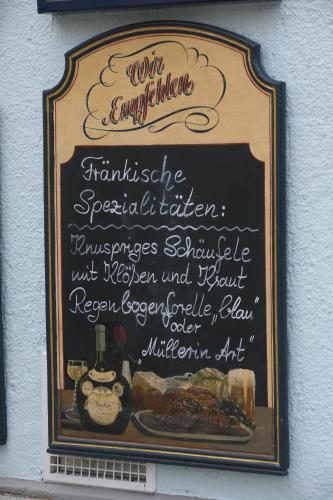 Wir
Empfehlen
Fränkische
Spezialitäten:
Knuspriges Schäufele
mit Klößen und Kraut
Regenbogenforelle „blau"
oder
„Müllerin Art"